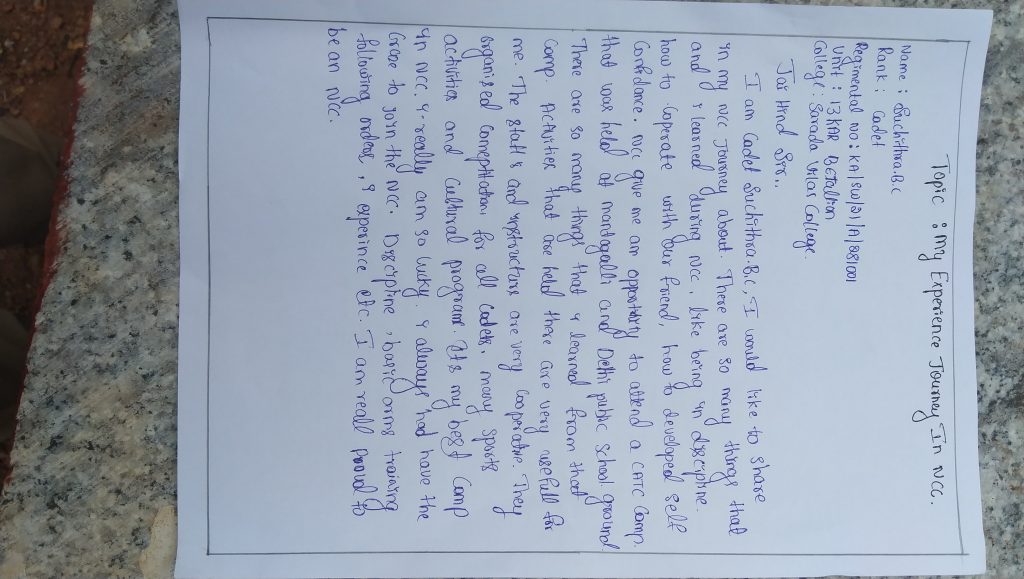 Topic : My Experience Journey In NCC.
Name : Suchithra.B.C
Rank : Cadet
Regimental no : KN/SW/21/N/881001
Unit : 13 KAR Betallion
College : Sarada Vilas College.
Jai Hind Sir..
I am Cadet Suchithra.B.C, I would like to share
in my NCC Journey about. There are so many things that
and I learned during NCC. like being in discipline.
how to Coperate with our friend, how to developed self
Confidance. NCC give me an opportuny to attend a CATC Camp.
that was held at mandagalli and Delhi public school ground.
There are so many things that I learned from that
Camp. Activities that are held there are very usefull for
me. The staff's and instructors are very Cooperative. They
organised Comeptitation for all Cadets. many sports
activities and Cultural program. It's my best Camp
in NCC. I really am so lucky. I always had have the
Craze to join the NCC. Discipline, basic arms training
following orders, I experince etc. I am reall proud to
be an NCC.